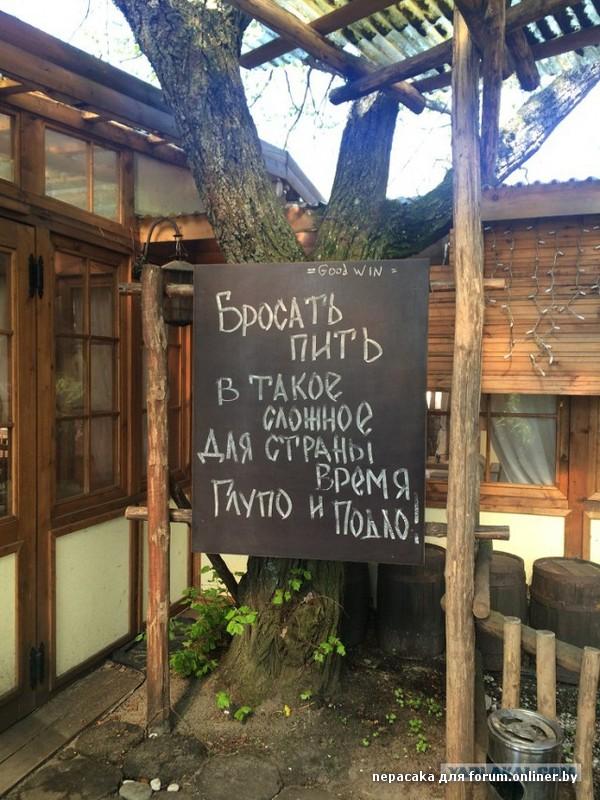 = GOOD WIN =
БРОСАТЬ
ПИТЬ
В ТАКОЕ
СЛОЖНОЕ
ДЛЯ СТРАНЫ
ВРЕМЯ
ГЛУПО И ПОДЛО!
перасака для forum.onliner.by